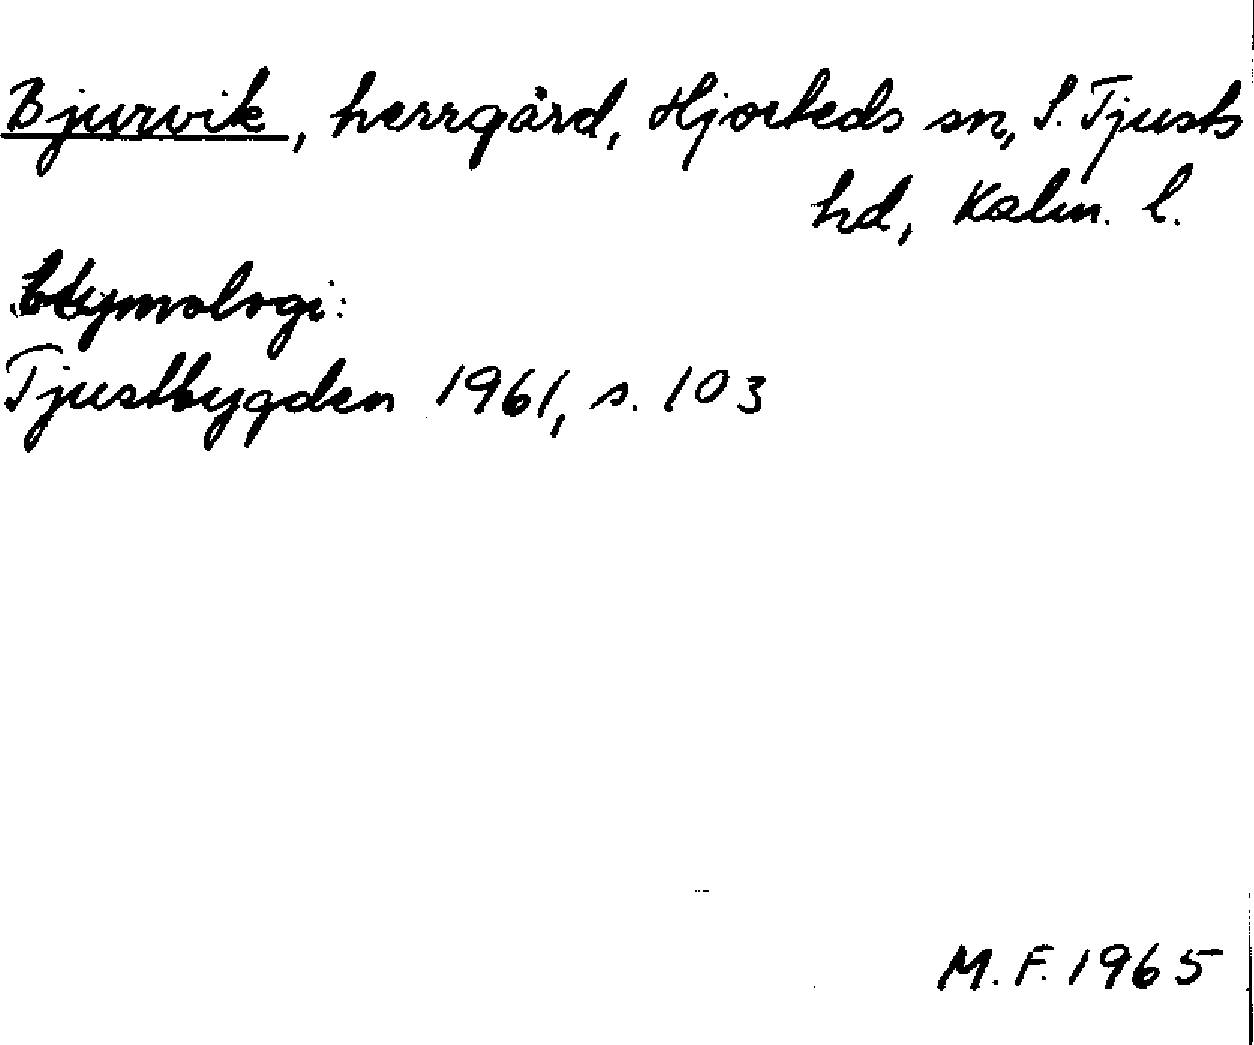 Bjurvik, herrgård, Hjorteds sn, S. Tjusts
hd, Kalm. l.
Etymologi:
Tjustbygden 1961, s. 103
M.F. 1965